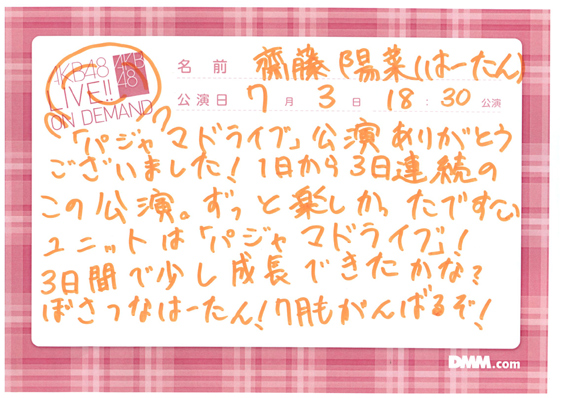 AKB48
LIVE!!
ON DEMAND
AKB
48
名前 齋藤陽菜(はーたん)
公演日 7月3日 18:30公演
「パジャマドライブ」公演ありがとう
ございました!1日から3日連続の
この公演。ずっと楽しかったです
ユニットは「パジャマドライブ」!
3日間で少し成長できたかな?
ぼさっなはーたん!7月もがんばるぞ!
DMM.com